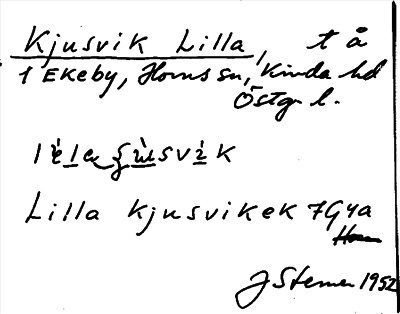 Kjusvik Lilla, t å
1 Ekeby, Horns sn, Kinda hd
Östg. l.
Lilla Kjusvikek 7G4a
J Stemer 1952